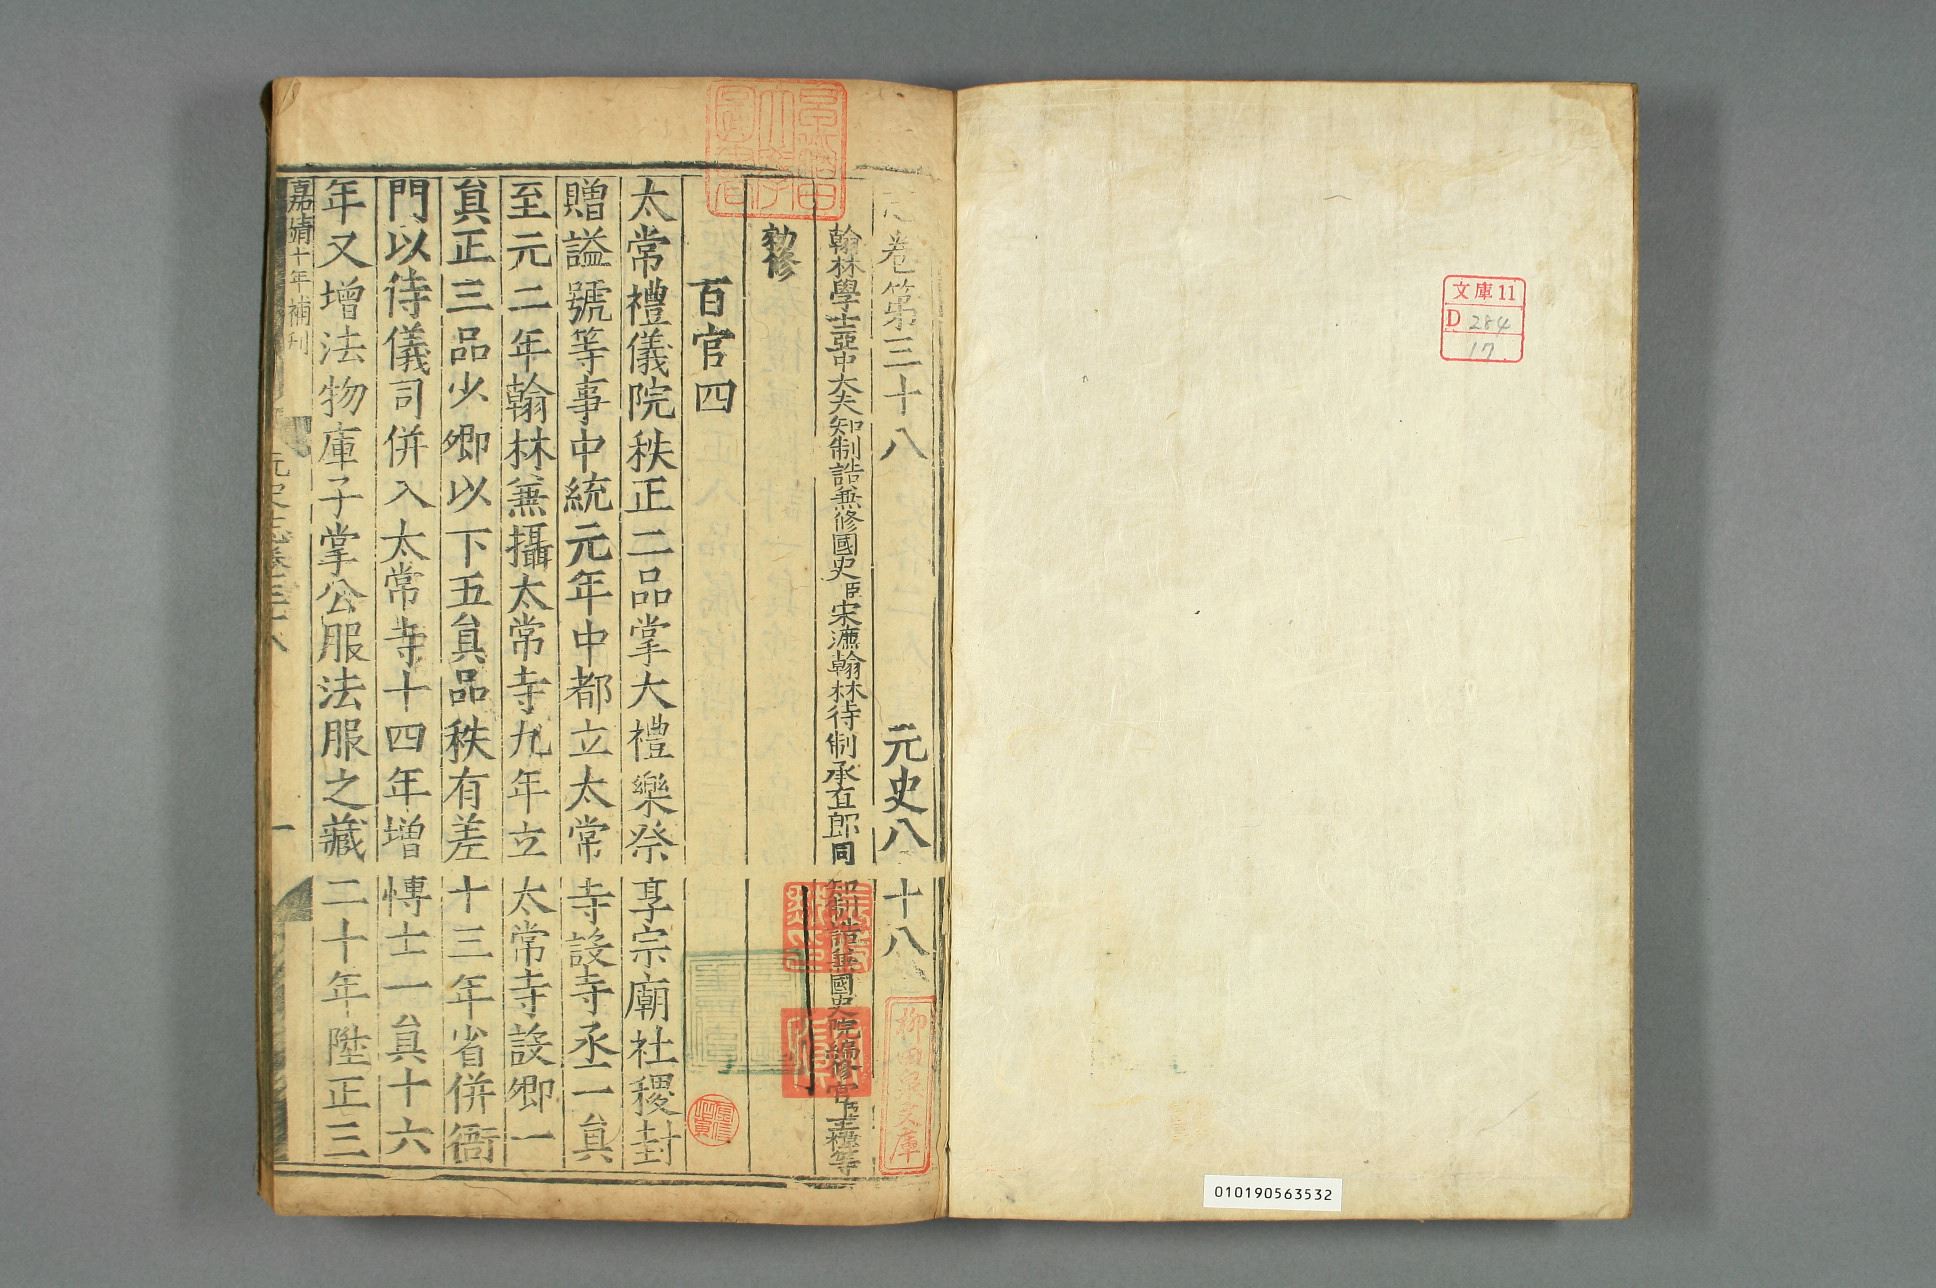 文庫11
D 284
17
010190563532
志卷第三十八 元史八十八
翰林學士亞中大夫知制誥兼修國史臣宋濂翰林待制承直郎同知制誥兼國史院編修官臣王禕等
勅修
百官四
太常禮儀院秩正二品掌大禮樂祭享宗廟社稷封
贈謚號等事中統元年中都立太常寺設寺丞一員
至元二年翰林兼攝太常寺九年立太常寺設卿一
員正三品少卿以下五員品秩有差十三年省併衙
門以侍儀司併入太常寺十四年增博士一員十六
年又增法物庫子掌公服法服之藏二十年陞正三
嘉靖十年補刊
元史志卷三十八
一
柳田泉文庫